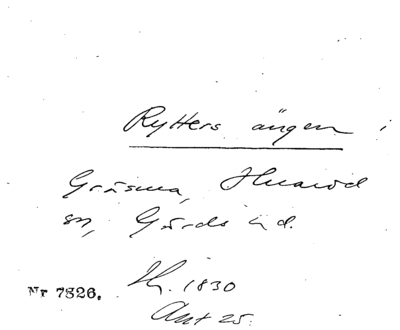 Ryttersängen i
Gråsma, Hvaröd
sn, Gärds hd.
Nr 7826. Th. 1830
Ant 25.